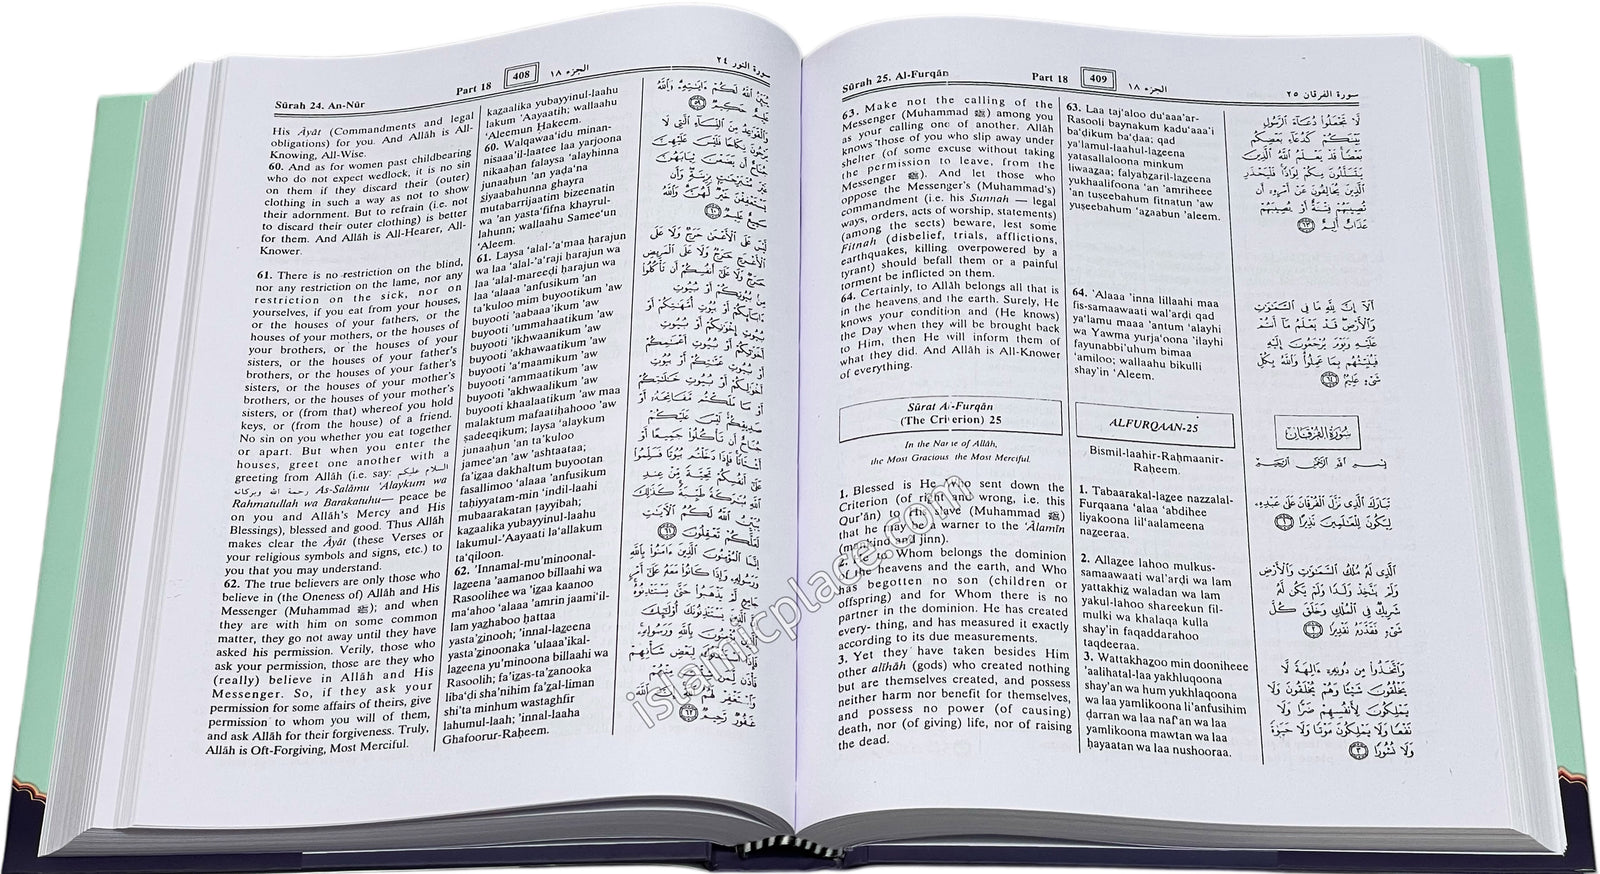 Sûrah 24. An-Nûr
Part 18
408
الجزء ١٨
سورة النور ٢٤
His Âyât (Commandments and legal
obligations) for you. And Allâh is All-
Knowing, All-Wise.
60. And as for women past childbearing
who do not expect wedlock, it is no sin
on them if they discard their (outer)
clothing in such a way as not to show
their adornment. But to refrain (i.e. not
to discard their outer clothing) is better
for them. And Allâh is All-Hearer, All-
Knower.
61. There is no restriction on the blind,
nor any restriction on the lame, nor any
restriction on the sick, nor on
yourselves, if you eat from your houses,
or the houses of your fathers, or the
houses of your mothers, or the houses of
your brothers, or the houses of your
sisters, or the houses of your father's
brothers, or the houses of your father's
sisters, or the houses of your mother's
brothers, or the houses of your mother's
sisters, or (from that) whereof you hold
keys, or (from the house) of a friend.
No sin on you whether you eat together
or apart. But when you enter the
houses, greet one another with a
greeting from Allâh (i.e. say: السلام عليكم
ورحمة الله وبركاته As-Salâmu 'Alaykum wa
Rahmatullah wa Barakatuhu— peace be
on you and Allâh's Mercy and His
Blessings), blessed and good. Thus Allâh
makes clear the Âyât (these Verses or
your religious symbols and signs, etc.) to
you that you may understand.
62. The true believers are only those who
believe in (the Oneness of) Allâh and His
Messenger (Muhammad ﷺ); and when
they are with him on some common
matter, they go not away until they have
asked his permission. Verily, those who
ask your permission, those are they who
(really) believe in Allâh and His
Messenger. So, if they ask your
permission for some affairs of theirs, give
permission to whom you will of them,
and ask Allâh for their forgiveness. Truly,
Allâh is Oft-Forgiving, Most Merciful.
kaẕaalika yubayyinul-laahu
lakum 'Aayaatih; wallaahu
'Aleemun Ḥakeem.
60. Walqawaa'idu minan-
nisaaa'il-laatee laa yarjoona
nikaaḥan falaysa 'alayhinna
junaaḥun 'an yaḍa'na
ṡiyaabahunna ghayra
mutabarrijaatim bizeenatin
wa 'an yasta'fifna khayrul-
lahunn; wallaahu Samee'un
'Aleem.
61. Laysa 'alal-'a'maa ḥarajun
wa laa 'alal-'a'raji ḥarajun wa
laa 'alal-mareeḍi ḥarajun wa
laa 'alaaa 'anfusikum 'an
ta'kuloo mim buyootikum 'aw
buyooti 'aabaaa'ikum 'aw
buyooti 'ummahaatikum 'aw
buyooti 'ikhwaanikum 'aw
buyooti 'akhawaatikum 'aw
buyooti 'a'maamikum 'aw
buyooti 'ammaatikum 'aw
buyooti 'akhwaalikum 'aw
buyooti khaalaatikum 'aw maa
malaktum mafaatiḥahooo 'aw
ṣadeeqikum; laysa 'alaykum
junaaḥun 'an ta'kuloo
jamee'an 'aw 'ashtaataa;
fa'iẕaa dakhaltum buyootan
fasallimoo 'alaaa 'anfusikum
taḥiyyatam-min 'indil-laahi
mubaarakatan ṭayyibah;
kaẕaalika yubayyinul-laahu
lakumul-'Aayaati la'allakum
ta'qiloon.
62. 'Innamal-mu'minoonal-
laẕeena 'aamanoo billaahi wa
Rasoolihee wa 'iẕaa kaanoo
ma'ahoo 'alaaa 'amrin jaami'il-
lam yaẕhaboo ḥattaa
yasta'ẕinooh; 'innal-laẕeena
yasta'ẕinoonaka 'ulaaa'ikal-
laẕeena yu'minoona billaahi wa
Rasoolih; fa'iẕas-ta'ẕanooka
liba'ḍi sha'nihim fa'ẕal-liman
shi'ta minhum wastaghfir
lahumul-laah; 'innal-laaha
Ghafoorur-Raḥeem.
Sûrah 25. Al-Furqân
Part 18
409
الجزء ١٨
سورة الفرقان ٢٥
63. Make not the calling of the
Messenger (Muhammad ﷺ) among you
as your calling one of another. Allâh
knows those of you who slip away under
shelter (of some excuse without taking
the permission to leave, from the
Messenger ﷺ). And let those who
oppose the Messenger's (Muhammad's)
commandment (i.e. his Sunnah — legal
ways, orders, acts of worship, statements)
(among the sects) beware, lest some
Fitnah (disbelief, trials, afflictions,
earthquakes, killing, overpowered by a
tyrant) should befall them or a painful
torment be inflicted on them.
64. Certainly, to Allâh belongs all that is
in the heavens and the earth. Surely, He
knows your condition and (He knows)
the Day when they will be brought back
to Him, then He will inform them of
what they did. And Allâh is All-Knower
of everything.
Sûrat Al-Furqân
(The Criterion) 25
In the Name of Allâh,
the Most Gracious the Most Merciful.
1. Blessed is He who sent down the
Criterion (of right and wrong, i.e. this
Qur'ân) to His slave (Muhammad ﷺ)
that he may be a warner to the 'Âlamîn
(mankind and jinn).
2. He to Whom belongs the dominion
of the heavens and the earth, and Who
has begotten no son (children or
offspring) and for Whom there is no
partner in the dominion. He has created
every- thing, and has measured it exactly
according to its due measurements.
3. Yet they have taken besides Him
other alihâh (gods) who created nothing
but are themselves created, and possess
neither harm nor benefit for themselves,
and possess no power (of causing)
death, nor (of giving) life, nor of raising
the dead.
63. Laa taj'aloo du'aaa'ar-
Rasooli baynakum kadu'aaa'i
ba'ḍikum ba'ḍaa; qad
ya'lamul-laahul-laẕeena
yatasallaloona minkum
liwaaẕaa; falyaḥẕaril-laẕeena
yukhaalifoona 'an 'amriheee
'an tuṣeebahum fitnatun 'aw
yuṣeebahum 'aẕaabun 'aleem.
64. 'Alaaa 'inna lillaahi maa
fis-samaawaati wal'arḍi qad
ya'lamu maaa 'antum 'alayhi
wa Yawma yurja'oona 'ilayhi
fayunabbi'uhum bimaa
'amiloo; wallaahu bikulli
shay'in 'Aleem.
ALFURQAAN-25
Bismil-laahir-Raḥmaanir-
Raḥeem.
1. Tabaarakal-laẕee nazzalal-
Furqaana 'alaa 'abdihee
liyakoona lil'aalameena
naẕeeraa.
2. Allaẕee lahoo mulkus-
samaawaati wal'arḍi wa lam
yattakhiẕ waladan wa lam
yakul-lahoo shareekun fil-
mulki wa khalaqa kulla
shay'in faqaddarahoo
taqdeeraa.
3. Wattakhaẕoo min dooniheee
'aalihatal-laa yakhluqoona
shay'an wa hum yukhlaqoona
wa laa yamlikoona li'anfusihim
ḍarran wa laa naf'an wa laa
yamlikoona mawtan wa laa
ḥayaatan wa laa nushooraa.
لَا تَجْعَلُوا دُعَاءَ الرَّسُولِ
بَيْنَكُمْ كَدُعَاءِ بَعْضِكُم
بَعْضًا قَدْ يَعْلَمُ اللَّهُ الَّذِينَ
يَتَسَلَّلُونَ مِنكُمْ لِوَاذًا فَلْيَحْذَرِ
الَّذِينَ يُخَالِفُونَ عَنْ أَمْرِهِ أَن
تُصِيبَهُمْ فِتْنَةٌ أَوْ يُصِيبَهُمْ
عَذَابٌ أَلِيمٌ ٦٣
أَلَا إِنَّ لِلَّهِ مَا فِي السَّمَٰوَٰتِ
وَالْأَرْضِ قَدْ يَعْلَمُ مَا أَنتُمْ
عَلَيْهِ وَيَوْمَ يُرْجَعُونَ إِلَيْهِ
فَيُنَبِّئُهُم بِمَا عَمِلُوا وَاللَّهُ بِكُلِّ
شَيْءٍ عَلِيمٌ ٦٤
سُورَةُ الفُرْقَانِ
بِسْمِ اللَّهِ الرَّحْمَٰنِ الرَّحِيمِ
تَبَارَكَ الَّذِي نَزَّلَ الْفُرْقَانَ عَلَىٰ عَبْدِهِ
لِيَكُونَ لِلْعَٰلَمِينَ نَذِيرًا ١
الَّذِي لَهُ مُلْكُ السَّمَٰوَٰتِ وَالْأَرْضِ
وَلَمْ يَتَّخِذْ وَلَدًا وَلَمْ يَكُن لَّهُ
شَرِيكٌ فِي الْمُلْكِ وَخَلَقَ كُلَّ
شَيْءٍ فَقَدَّرَهُ تَقْدِيرًا ٢
وَاتَّخَذُوا مِن دُونِهِ ءَالِهَةً لَّا
يَخْلُقُونَ شَيْئًا وَهُمْ يُخْلَقُونَ وَلَا
يَمْلِكُونَ لِأَنفُسِهِمْ ضَرًّا وَلَا
نَفْعًا وَلَا يَمْلِكُونَ مَوْتًا وَلَا حَيَوٰةً
وَلَا نُشُورًا ٣
islamicplace.com